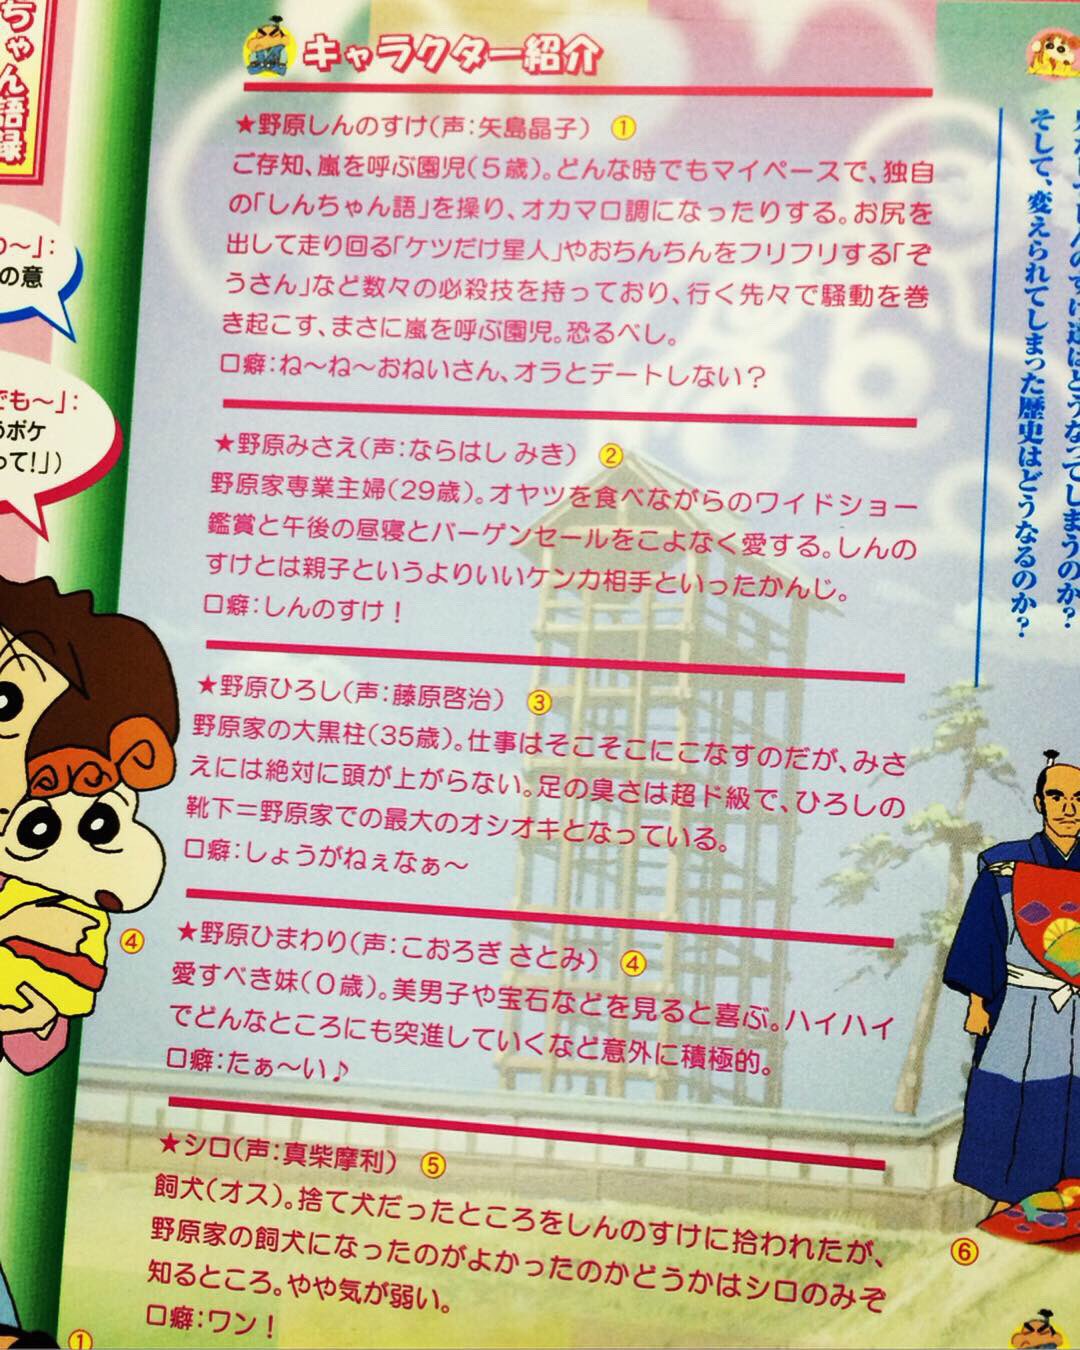 ちゃん語録
キャラクター紹介
★野原しんのすけ(声:矢島晶子) ①
ご存知、嵐を呼ぶ園児(5歳)。どんな時でもマイペースで、独自
の「しんちゃん語」を操り、オカマロ調になったりする。お尻を
出して走り回る「ケツだけ星人」やおちんちんをフリフリする「ぞ
うさん」など数々の必殺技を持っており、行く先々で騒動を巻
き起こす、まさに嵐を呼ぶ園児。恐るべし。
口癖:ね〜ね〜おねいさん、オラとデートしない?
★野原みさえ(声:ならはし みき) ②
野原家専業主婦(29歳)。オヤツを食べながらのワイドショー
鑑賞と午後の昼寝とバーゲンセールをこよなく愛する。しんの
すけとは親子というよりいいケンカ相手といったかんじ。
口癖:しんのすけ!
★野原ひろし(声:藤原啓治) ③
野原家の大黒柱(35歳)。仕事はそこそこにこなすのだが、みさ
えには絶対に頭が上がらない。足の臭さは超ド級で、ひろしの
靴下=野原家での最大のオシオキとなっている。
口癖:しょうがねぇなぁ〜
★野原ひまわり(声:こおろぎ さとみ) ④
愛すべき妹(0歳)。美男子や宝石などを見ると喜ぶ。ハイハイ
でどんなところにも突進していくなど意外に積極的。
口癖:たぁ〜い♪
★シロ(声:真柴摩利) ⑤
飼犬(オス)。捨て犬だったところをしんのすけに拾われたが、
野原家の飼犬になったのがよかったのかどうかはシロのみぞ
知るところ。やや気が弱い。
口癖:ワン!
〜」:
の意
でも〜」:
ポケ
って!」)
④
①
⑥
しんのすけ達はどうなってしまうのか?
そして、変えられてしまった歴史はどうなるのか?